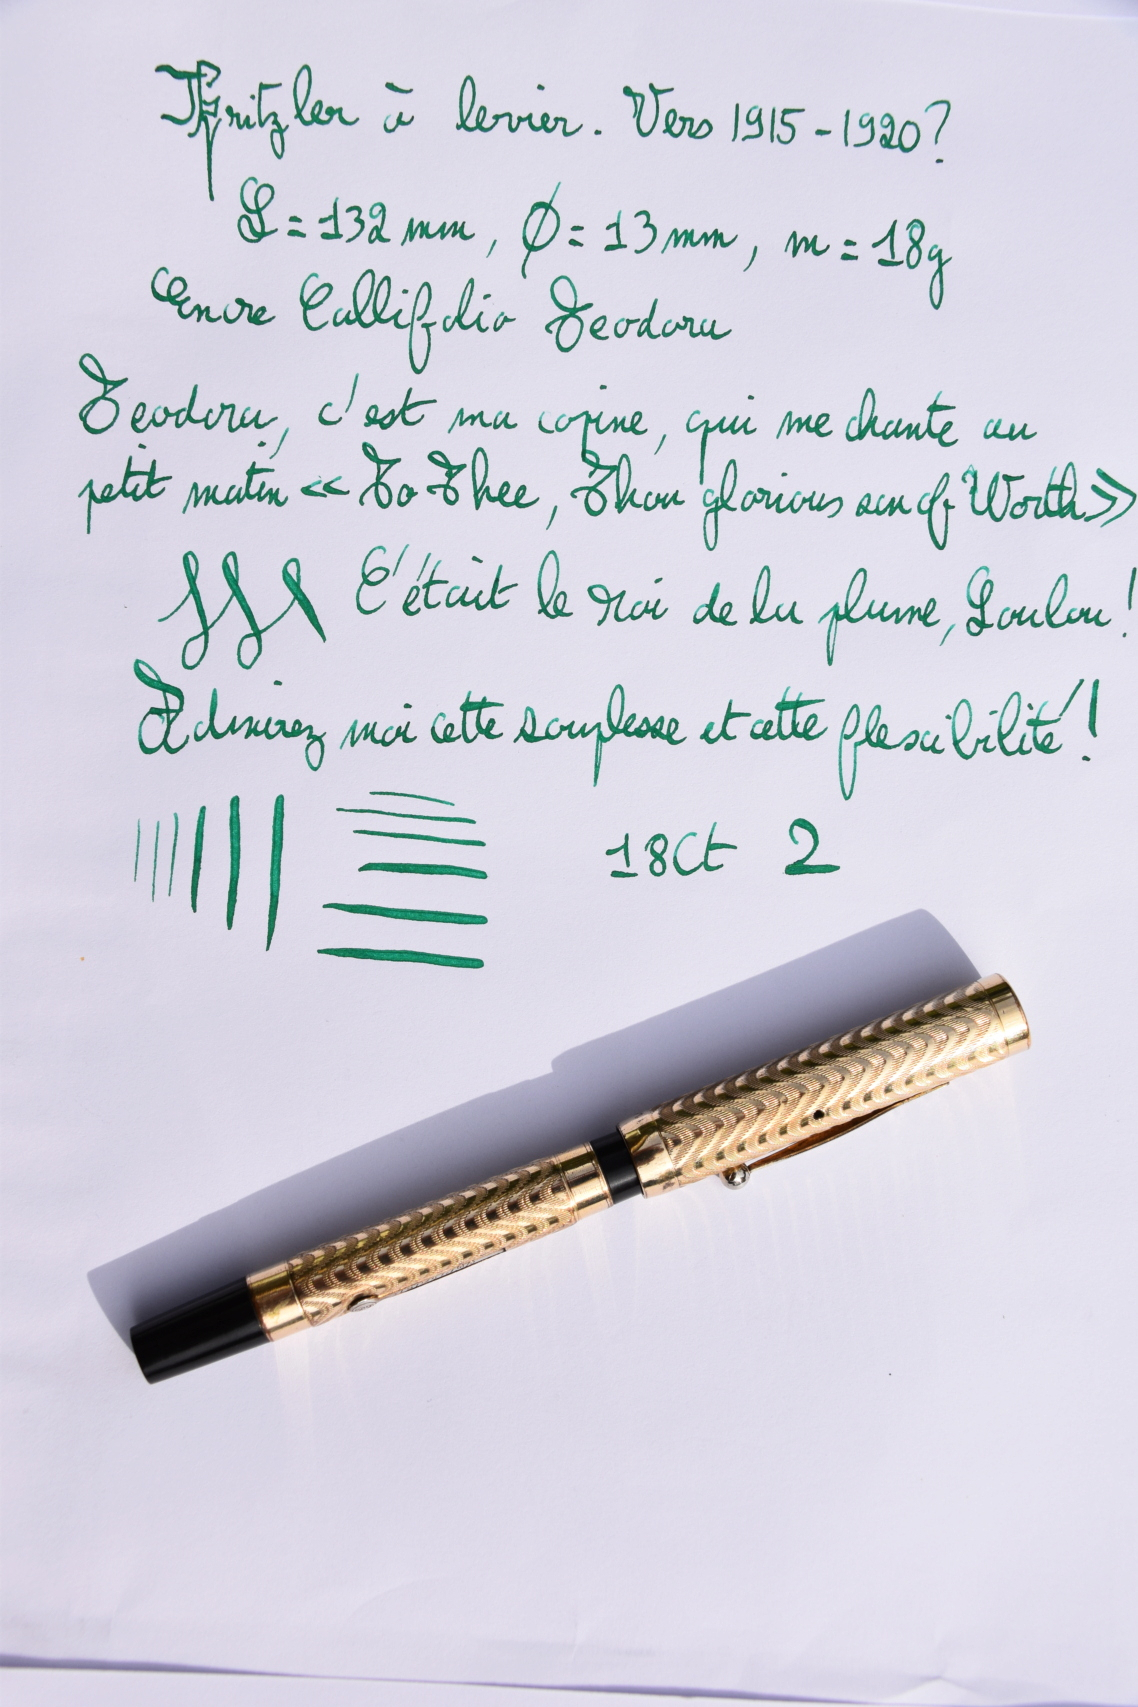 Fritzler à levier. Vers 1915-1920?
L = 132 mm, Ø = 13 mm, m = 18g
Encre Callifolio Teodora
Teodora, c'est ma copine, qui me chante au
petit matin << To Thee, Thou glorious son of Worth >>
C'était le roi de la plume, Loulou !
Admirez moi cette souplesse et cette flescibilité !
18Ct 2